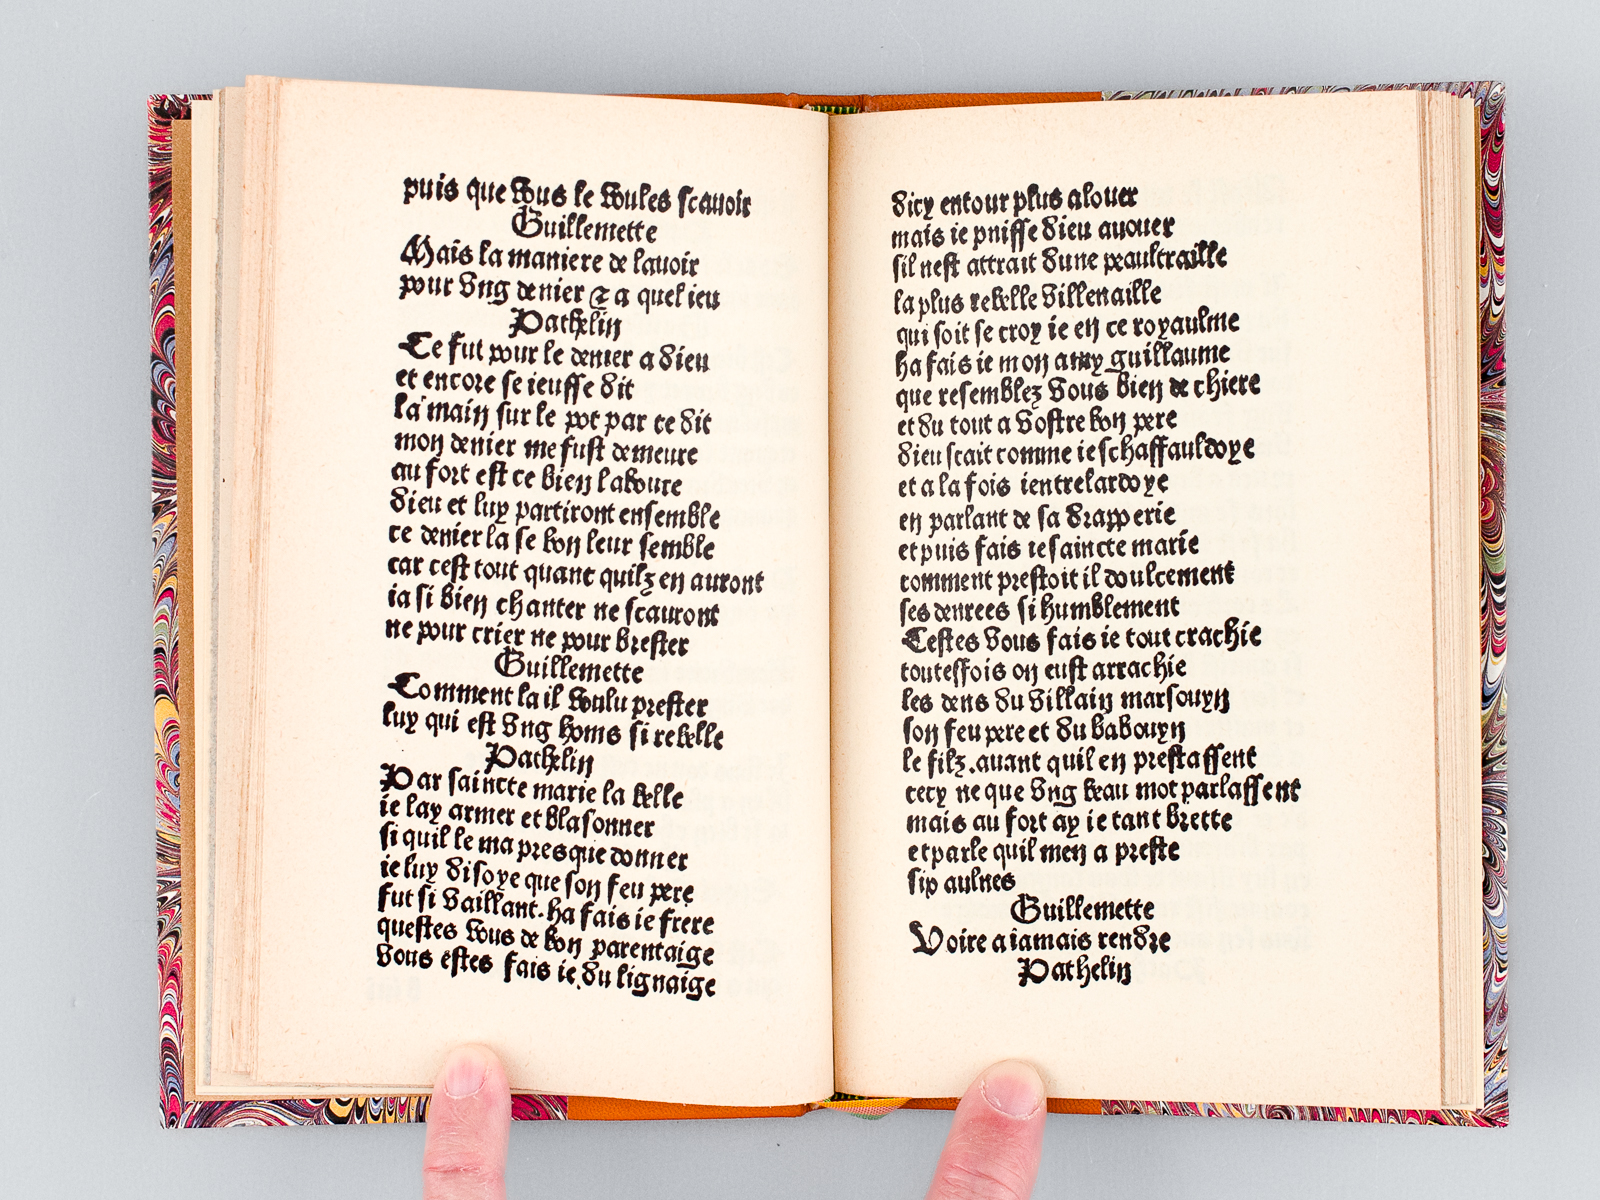 puis que vous le voules scauoir
Guillemette
Mais la maniere de lauoir
pour vng denier & a quel ieu
Pathelin
Ce fut pour le denier a dieu
et encore se ieusse dit
la main sur le pot par ce dit
mon denier me fust demeure
au fort est ce bien laboure
dieu et luy partiront ensemble
ce denier la se bon leur semble
car cest tout quant quilz en auront
ia si bien chanter ne scauront
ne pour crier ne pour brester
Guillemette
Comment la il voulu prester
luy qui est vng homs si rebelle
Pathelin
Par saincte marie la belle
ie lay armer et blasonner
si quil le ma presque donner
ie luy disoye que son feu pere
fut si vaillant. ha fais ie frere
questes vous de bon parentaige
vous estes fais ie. du lignaige
dicy entour plus a louer
mais ie pnisse dieu auouer
sil nest attrait dune peaultraille
la plus rebelle villenaille
qui soit se croy ie en ce royaulme
ha fais ie mon amy guillaume
que resemblez vous bien de chiere
et du tout a vostre bon pere
dieu scait comme ie schaffauldoye
et a la fois ientrelardoye
en parlant de sa drapperie
et puis fais ie saincte marie
comment prestoit il doulcement
ses denrees si humblement
Cestes vous fais ie tout crachie
toutesfois on eust arrachie
les dens du villain marsouyn
son feu pere et du babouyn
le filz. auant quil en prestassent
cecy ne que vng beau mot parlassent
mais au fort ay ie tant brette
et parle quil men a preste
six aulnes
Guillemette
Voire a iamais rendre
Pathelin